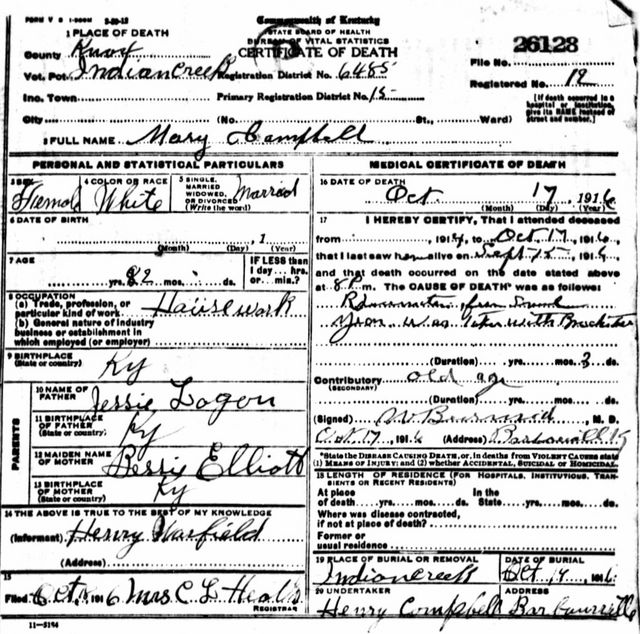 FORM V S 1-500M 3-20-12
Commonwealth of Kentucky
STATE BOARD OF HEALTH
BUREAU OF VITAL STATISTICS
CERTIFICATE OF DEATH
1 PLACE OF DEATH
County Knox
Vot. Pct. Indian Creek Registration District No. 6485
Inc. Town Primary Registration District No. 15
City (No. St., Ward)
File No. 26128
Registered No. 12
[If death occurred in a hospital or institution, give its NAME instead of street and number.]
2 FULL NAME Mary Campbell
PERSONAL AND STATISTICAL PARTICULARS
3 SEX Femal
4 COLOR OR RACE White
5 SINGLE, MARRIED WIDOWED, OR DIVORCED (Write the word) Married
6 DATE OF BIRTH
(Month) (Day) 1 (Year)
7 AGE 82 yrs. mos. ds.
IF LESS than 1 day... hrs. or... min.
8 OCCUPATION
(a) Trade, profession, or particular kind of work Housework
(b) General nature of industry business or establishment in which employed (or employer)
9 BIRTHPLACE (State or country) Ky
PARENTS
10 NAME OF FATHER Jessie Logen
11 BIRTHPLACE OF FATHER (State or country) Ky
12 MAIDEN NAME OF MOTHER Bessie Elliott
13 BIRTHPLACE OF MOTHER (State or country) Ky
14 THE ABOVE IS TRUE TO THE BEST OF MY KNOWLEDGE
(Informant) Henry Warfield
(Address)
15
Filed Oct 1916 Mrs C L Heath
REGISTRAR
11-5194
MEDICAL CERTIFICATE OF DEATH
16 DATE OF DEATH Oct 17, 1916
(Month) (Day) (Year)
17 I HEREBY CERTIFY, That I attended deceased
from , 1916, to Oct 17, 1916,
that I last saw h alive on Sept 15 1916
and that death occurred on the date stated above
at 8 P m. The CAUSE OF DEATH* was as follows:
was with
(Duration) yrs. mos. 3 ds.
Contributory (SECONDARY) old age
(Duration) yrs. mos. ds.
(Signed) M. D.
Oct 17, 1916 (Address)
*State the DISEASE CAUSING DEATH, or, in deaths from VIOLENT CAUSES state (1) MEANS OF INJURY: and (2) whether ACCIDENTAL, SUICIDAL OR HOMICIDAL.
18 LENGTH OF RESIDENCE (FOR HOSPITALS, INSTITUTIONS, TRANSIENTS OR RECENT RESIDENTS)
At place of death yrs. mos. ds. In the State yrs. mos. ds.
Where was disease contracted, if not at place of death?
Former or usual residence
19 PLACE OF BURIAL OR REMOVAL Indian Creek
DATE OF BURIAL Oct 19, 1916
20 UNDERTAKER Henry Campbell
ADDRESS Barbourville